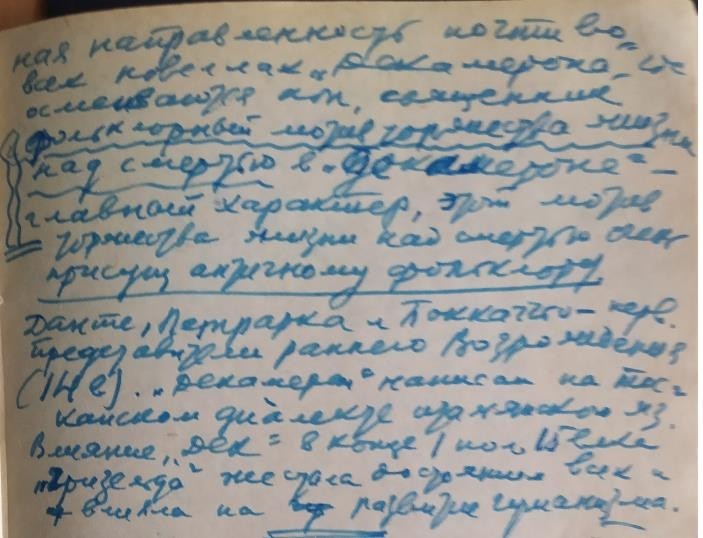 ная направленность почти во
всех новеллах „Декамерона"
осмеивается поп, священник
Фольклорный мотив торжества жизни
над смертью в „Декамероне" –
главный характер, этот мотив
торжества жизни над смертью
присущ античному фольклору
Данте, Петрарка и Боккаччо – перв.
представители раннего Возрождения
(14 в). „Декамерон" написан на тос-
канском диалекте итальянского яз.
Влияние „Дек" в конце 1 пол. века
„Гризельда" же стала достоянием всех и
влияла на развитие гуманизма.